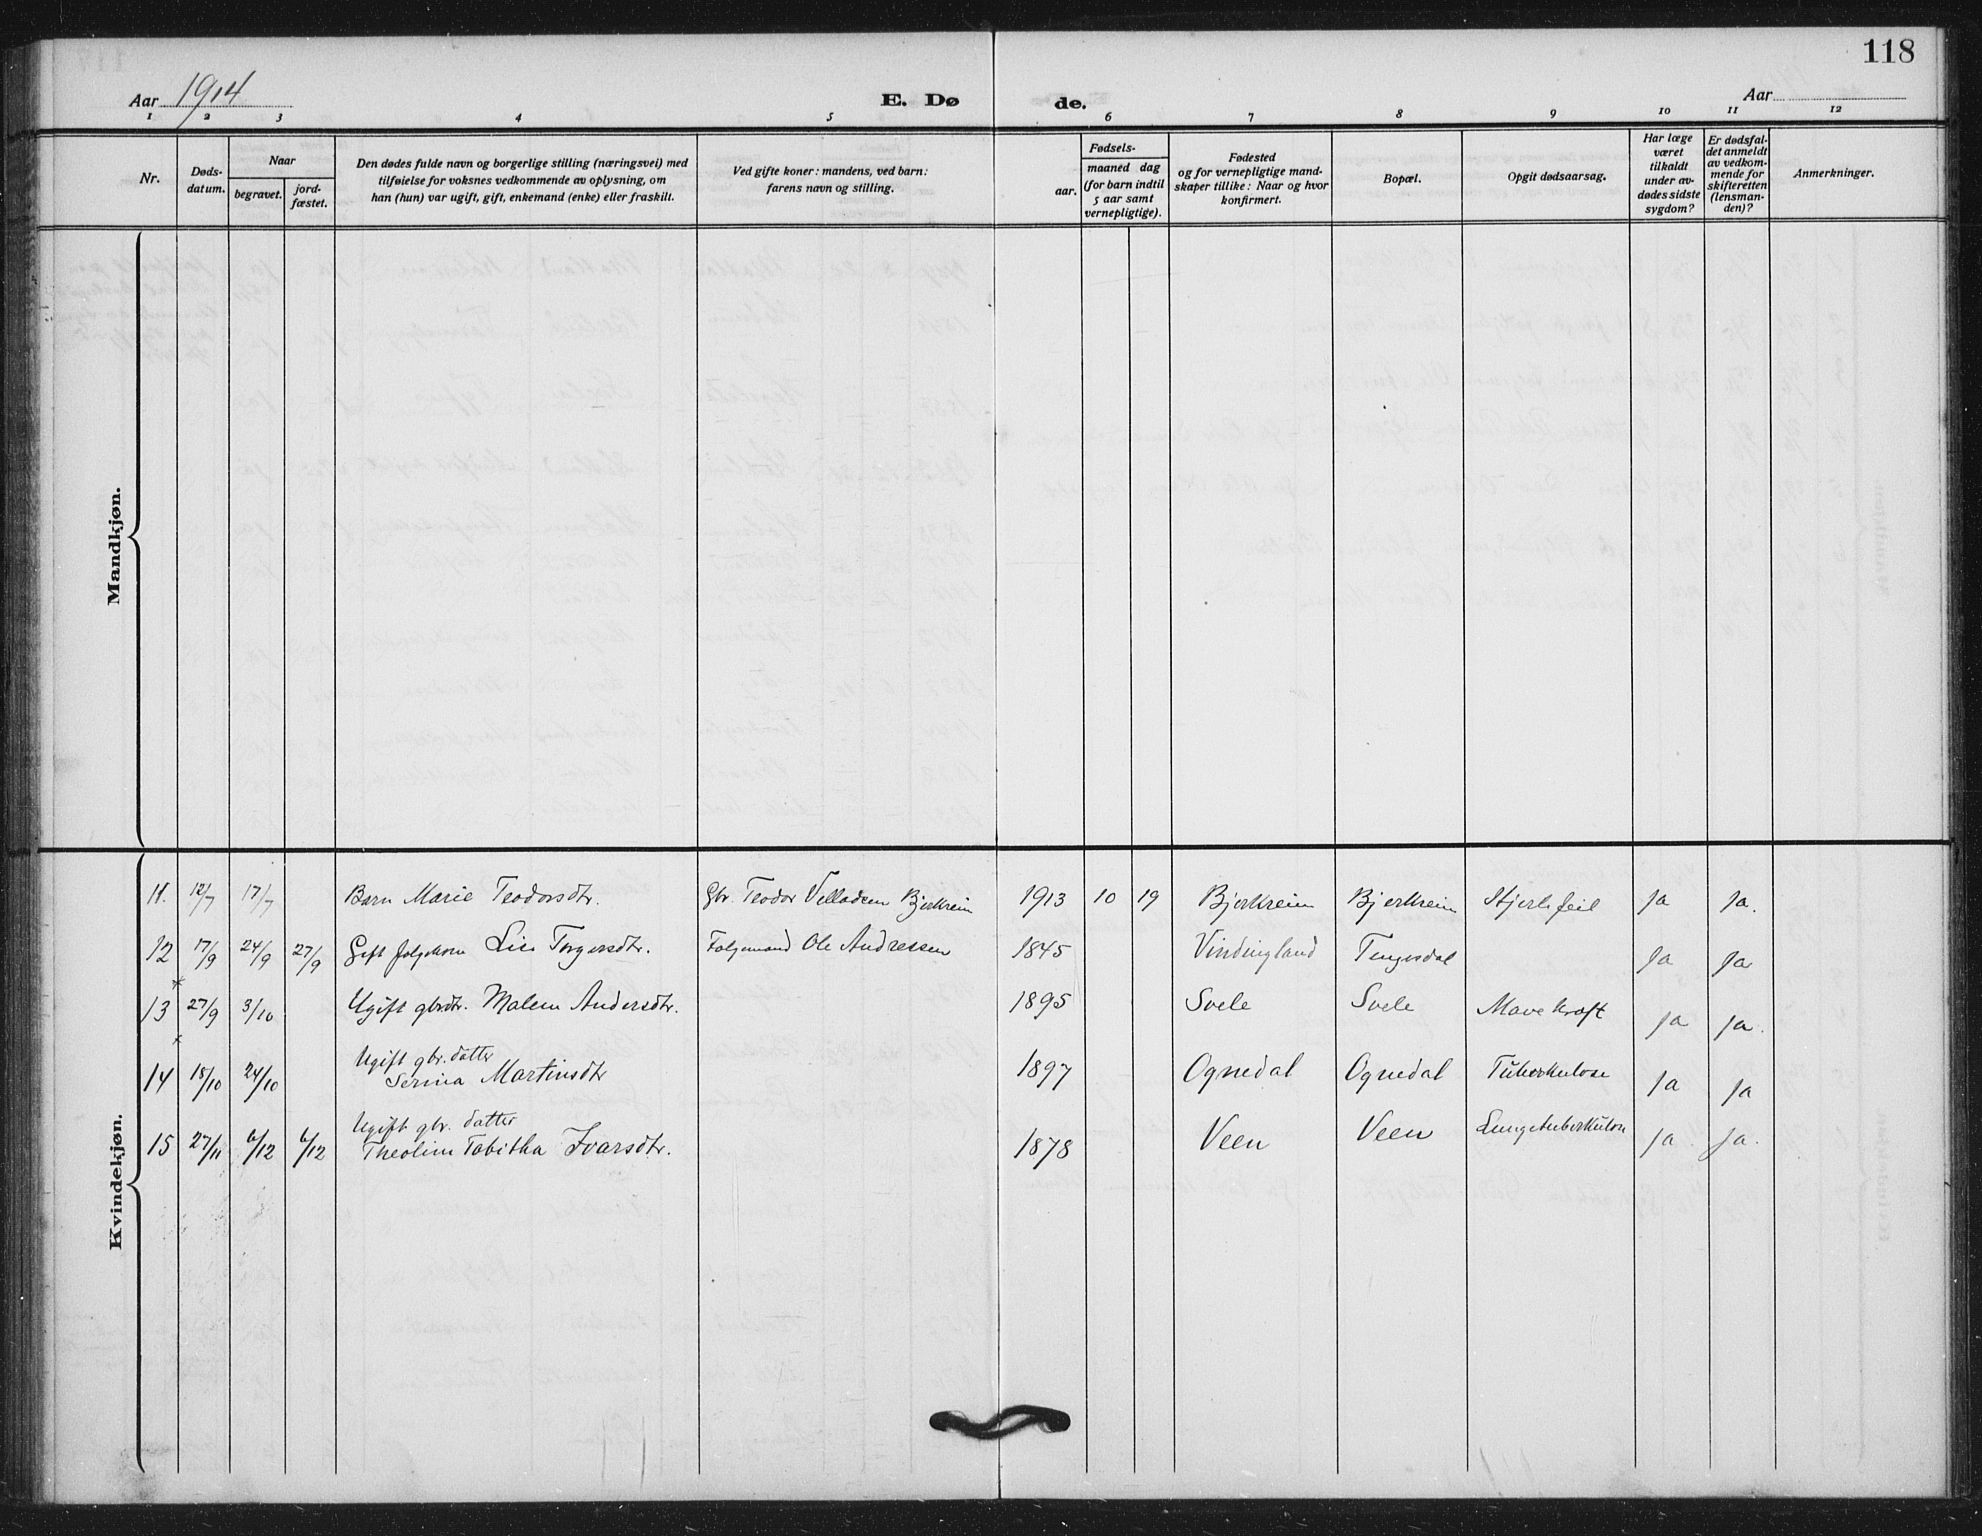 118
Aar 1914
E. Dø
de.
Aar
1 2 3 4 5 6 7 8 9 10 11 12
Nr.
Døds-
datum.
Naar
begravet.
jord-
fæstet.
Den dødes fulde navn og borgerlige stilling (næringsvei) med
tilføielse for voksnes vedkommende av oplysning, om
han (hun) var ugift, gift, enkemand (enke) eller fraskilt.
Ved gifte koner: mandens, ved barn:
farens navn og stilling.
Fødsels-
aar.
maaned dag
(for barn indtil
5 aar samt
vernepligtige).
Fødested
og for vernepligtige mand-
skaper tillike: Naar og hvor
konfirmert.
Bopæl.
Opgit dødsaarsag.
Har læge
været
tilkaldt
under av-
dødes sidste
sygdom?
Er dødsfal-
det anmeldt
av vedkom-
mende for
skifteretten
(lensman-
den)?
Anmerkninger.
Mandkjøn.
Kvindekjøn.
11. 12/7 17/7 Barn Marie Teodorsdtr. Gbr. Teodor Velladsen Bjerkreim 1913 10 19 Bjerkreim Bjerkreim Hjertefeil ja ja.
12 17/9 24/9 27/9 Gift folgekone Lise Torgersdtr. Folgemand Ole Andressen 1845 Vindingland Tengesdal ja ja
13 27/9 3/10 Ugift gbrdtr. Malene Andersdtr. 1895 Svele Svele Mavekræft ja ja.
Ugift gbr. datter
14 18/10 24/10 Serina Martinsdtr 1897 Ognedal Ognedal Tuberkulose ja ja
Ugift gbr. datter
15 27/11 6/12 6/12 Theoline Tabitha Ivarsdtr. 1878 Veen Veen Lungetuberkulose ja. ja.